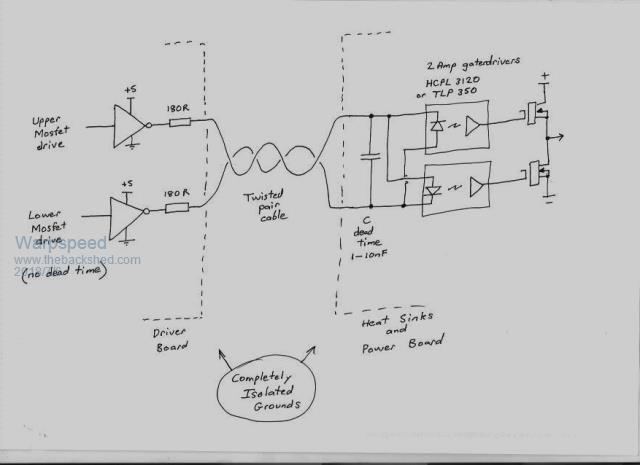 2 Amp gatedrivers
HCPL 3120
or TLP 350
+
+5
180R
Upper
Mosfet
drive
+5
180R
Twisted
pair
cable
Lower
Mosfet
drive
(no dead time)
C
dead
time
1-10nF
Warpspeed
www.thebackshed.com
Driver
Board
Heat Sinks
and
Power Board
Completely
Isolated
Grounds